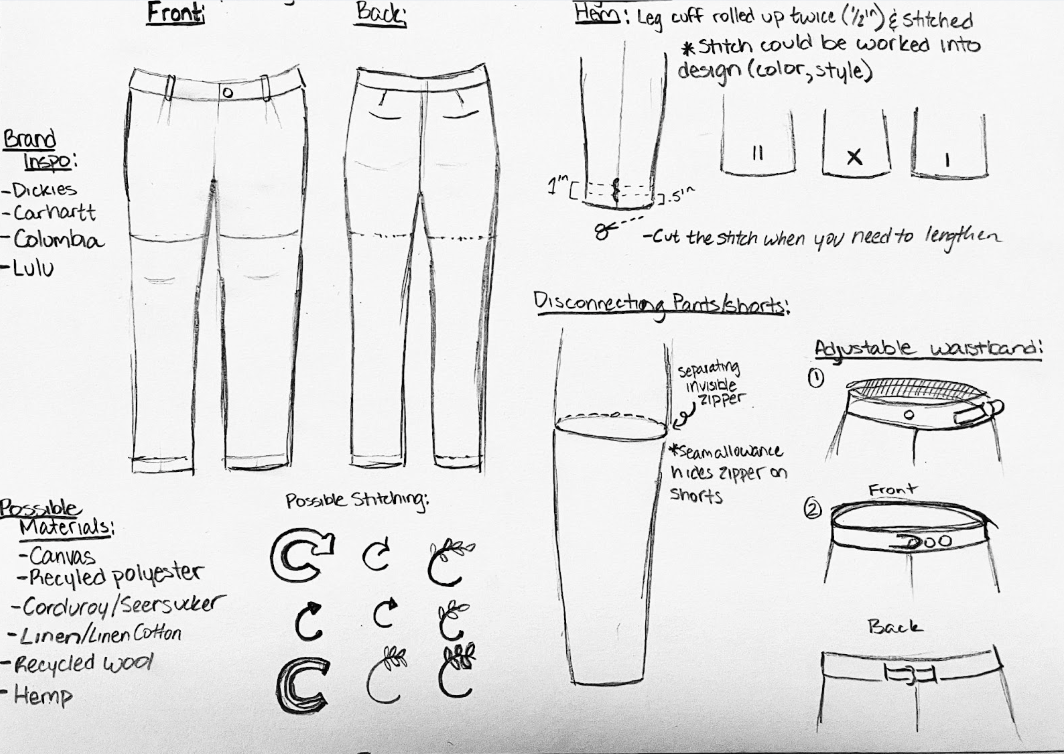 Front:
Back:
Brand
Inspo:
-Dickies
-Carhartt
-Columbia
-Lulu
Hem: Leg cuff rolled up twice (1/2in) & stitched
*Stitch could be worked into
design (color, style)
1in
.5in
II
X
I
-Cut the stitch when you need to lengthen
Disconnecting Pants/shorts:
separating
invisible
zipper
*Seam allowance
hides zipper on
shorts
Adjustable waistband:
①
②
Front
Back
Possible
Materials:
-Canvas
-Recyled polyester
-Corduroy/Seersucker
-Linen/Linen Cotton
-Recycled wool
-Hemp
Possible Stitching: